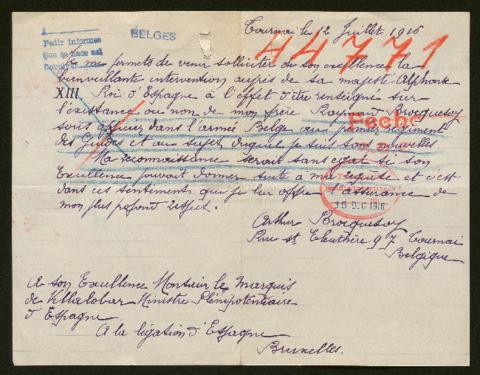 BELGES
Tournai le 12 Juillet 1916
Pedir informes
44771
Je me permets de venir solliciter de son excellence la
bienveillante intervention auprès de sa majesté Alphonse
XIII Roi d'Espagne à l'effet d'être renseigné sur
l'existance ou non de mon frère Raymond Brocquesoy
sous officier dans l'armée Belge au premier régiment
des Guides et au sujet duquel je suis sans nouvelles
Fecha
Ma reconnaissance serait sans egal si son
Excellence pouvait donner suite à ma requête et c'est
dans ces sentiments que je lui offre l'assurance de
mon plus profond respect.
16 DIC 1916
Arthur Brocquesoy
Rue St Eleuthère 97 Tournai
Belgique
A son Excellence Monsieur le Marquis
de Villalobar Ministre Plénipotentiaire
d'Espagne
A la légation d'Espagne
Bruxelles.